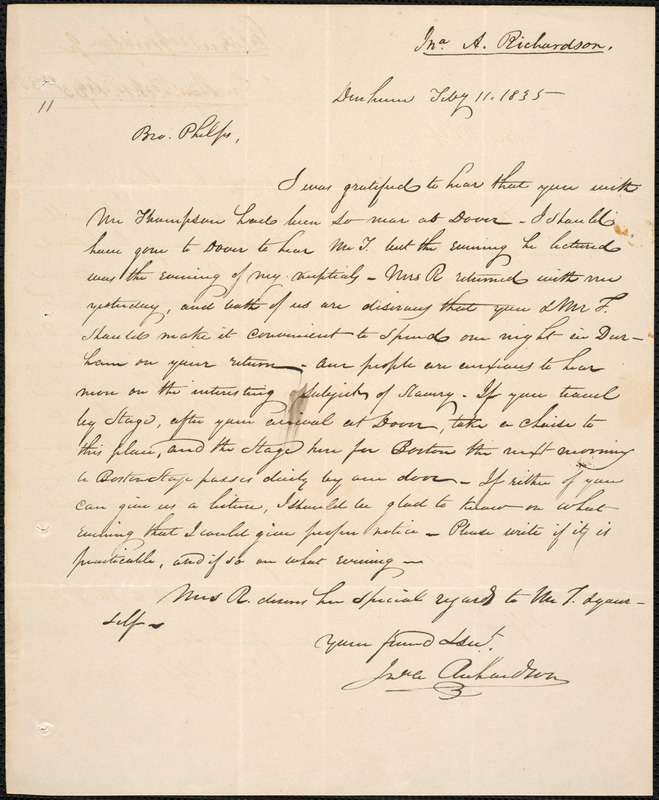 Jnº A. Richardson.
Durham Feby 11. 1835
11
Bro. Phelps,
I was gratified to hear that you with
Mr Thompson had been so near as Dover - I should
have gone to Dover to hear Mr T. but the evening he lectured
was the evening of my nuptials - Mrs R returned with me
yesterday, and both of us are desirous that you & Mr T.
should make it convenient to spend one night in Dur-
ham on your return - our people are anxious to hear
more on the interesting subject of Slavery - If you travel
by Stage, after your arrival at Dover, take a chaise to
this place, and the Stage here for Boston the next morning
a Boston Stage passes daily by our door - If either of you
can give us a lecture, I should be glad to know on what
evening that I could give proper notice - Please write if it is
practicable, and if so on what evening -
Mrs R. desires her special regards to Mr T. & your-
self -
Your friend & servt.
Richardson